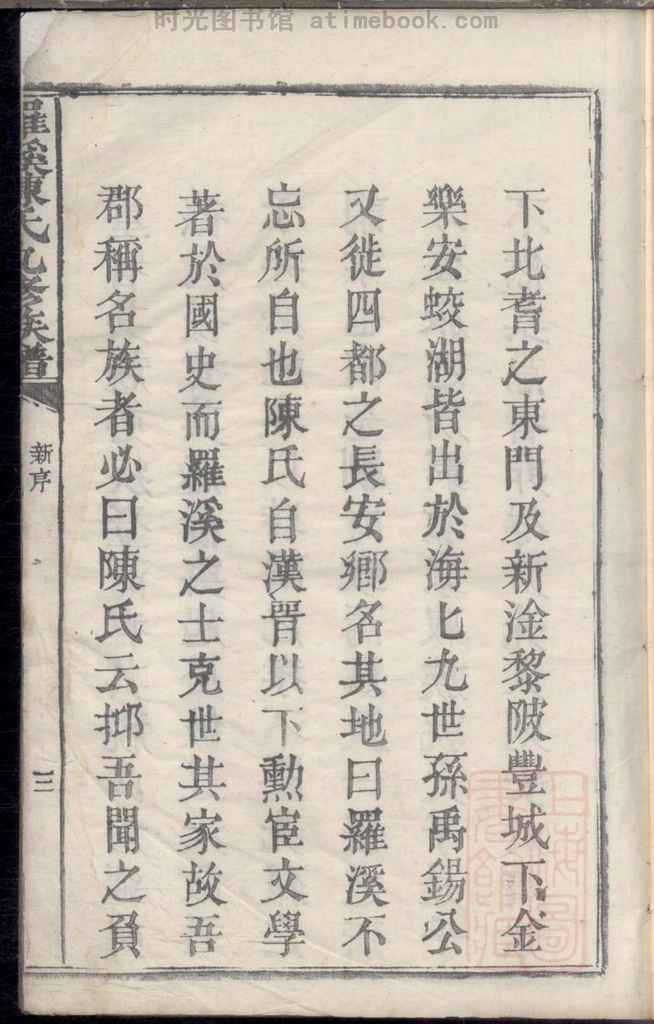 时光图书馆 atimebook.com
下北耆之東門及新淦黎陂豐城下金
樂安蛟湖皆出於海七九世孫禹錫公
又徙四都之長安鄉名其地曰羅溪不
忘所自也陳氏自漢晉以下勳宦文學
著於國史而羅溪之士克世其家故吾
郡稱名族者必曰陳氏云抑吾聞之負
羅溪陳氏九修族譜
新序
三